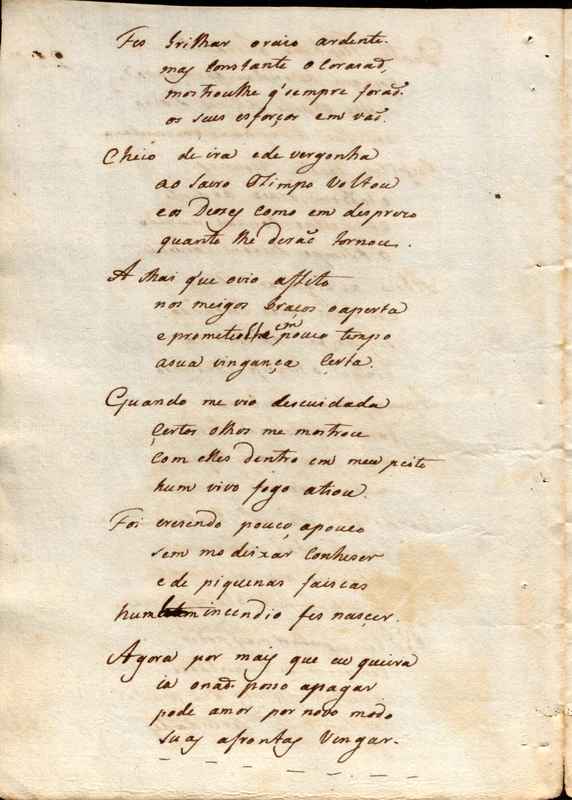 Fes brilhar o raio ardente.
mas constante o Corasaõ,
mostroulhe q' sempre foraõ
os seus esforços em vaõ.
Cheio de ira e de vergonha
ao sacro Olimpo voltou
e os Deoses como em desprezo
quanto lhe deraõ tornou.
A Mai que o vio aflito
nos meigos braços o aperta
e prometeolhe em pouco tempo
a sua vingança Certa.
Quando me vio descuidada
Certos olhos me mostrou
Com elles dentro em meu peito
hum vivo fogo atiou.
Foi cresendo pouco, a pouco
sem mo deixar Conheser
e de piquenas faiscas
hum incendio fes nasçer.
Agora por mais que eu queira
ia o naõ posso apagar
pode amor por novo modo
suas afrontas Vingar.